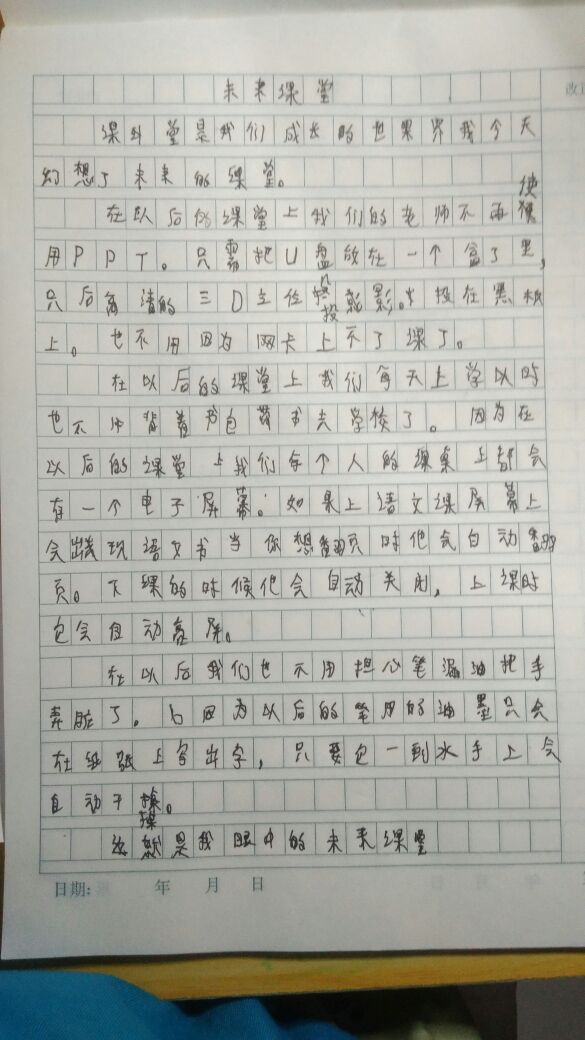 未来课堂
课堂是我们成长的世界我今天
幻想了未来的课堂。
使
在以后的课堂上我们的老师不再
用PPT。只需把U盘放在一个盒子里,
只后高清的三D立体投影就投在黑板
上。也不用因为网卡上不了课了。
在以后的课堂上我们每天上学以时
也不用背着书包带书去学校了。因为在
以后的课堂上我们每个人的课桌上都会
有一个电子屏幕。如果上语文课屏幕上
会出现语文书当你想翻页时他会自动翻
页。下课的时候他会自动关闭,上课时
它会自动亮屏。
在以后我们也不用担心笔漏油把手
弄脏了。因为以后的笔用的油墨只会
在纸张上写出字,只要它一到水手上会
自动干
就是我眼中的未来课堂
日期: 年 月 日